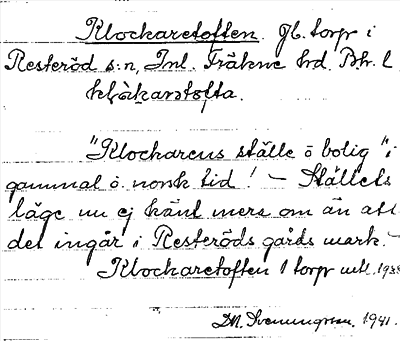 Klockaretoften. Gl. torp i
Resteröd s:n, Inl. Fräkne hd. Bh. l.
klɔ̀karətɔfta.
"Klockarens ställe o bolig" i
gammal o. norsk tid! – Ställets
läge nu ej känt mera om än att
det ingår i Resteröds gårds mark. –
Klockaretoften 1 torp utl.
Svenungsson. 1941.